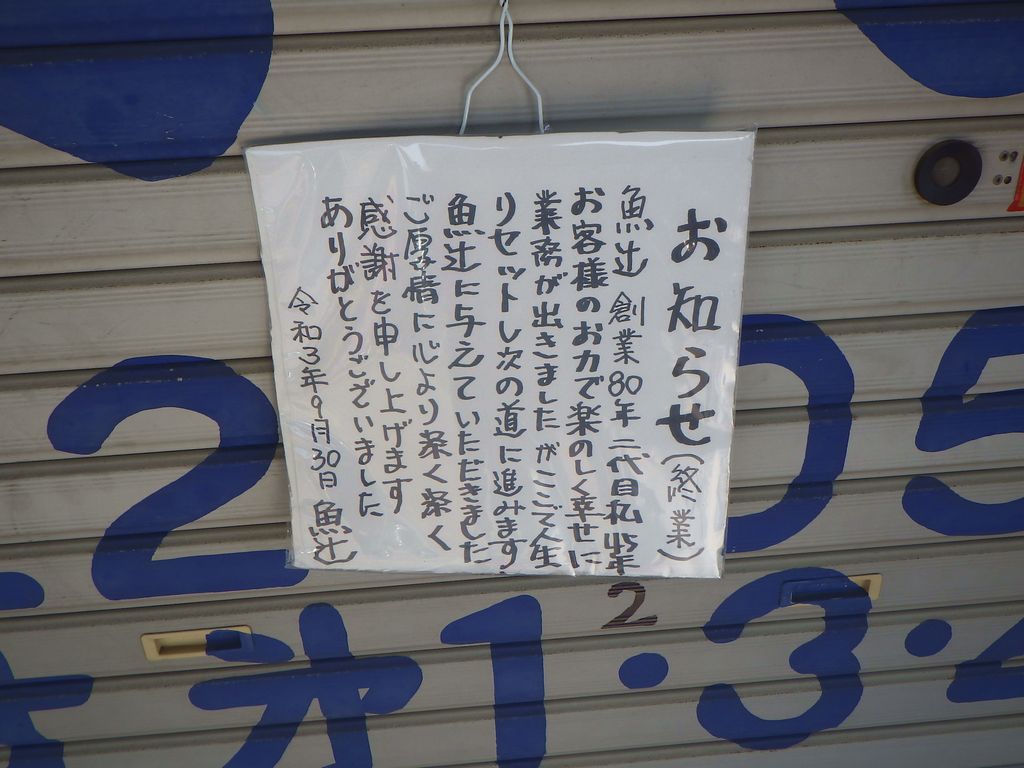 お知らせ(終業)
魚辻 創業80年 二代目私45年
お客様のお力で楽のしく幸せに
業務が出きましたがここで人生
リセットし次の道に進みます
魚辻に与えていただきました
ご厚情に心より深く深く
感謝を申し上げます
ありがとうございました
令和3年9月30日 魚辻
2 05
2
オ1・3・